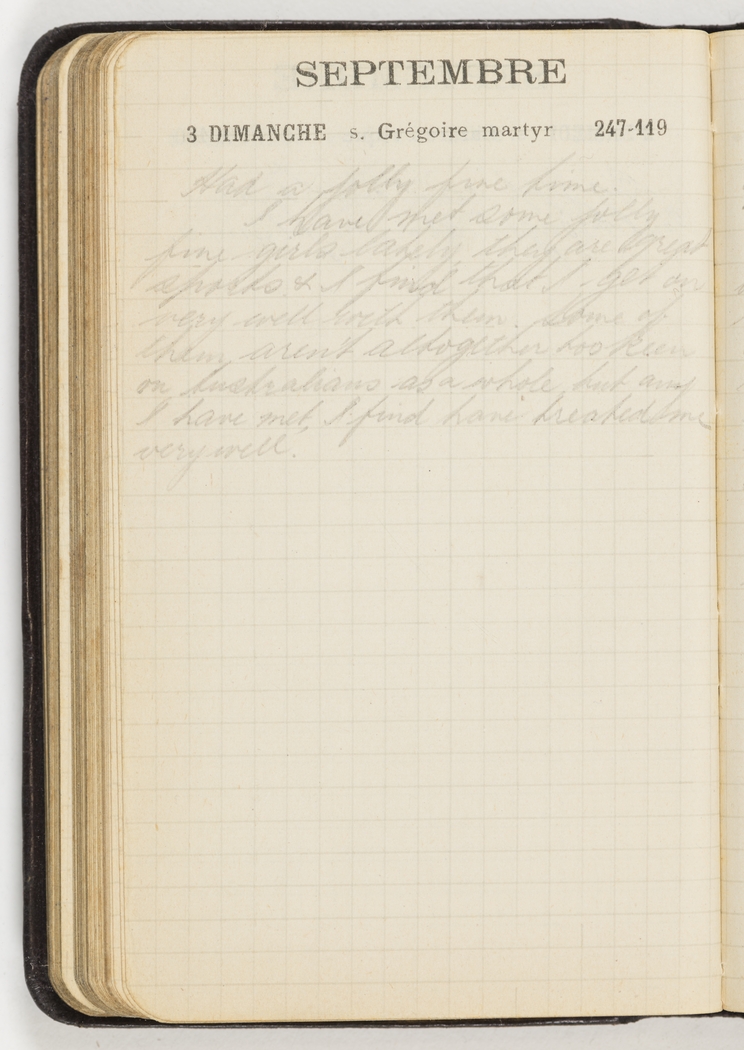 SEPTEMBRE
3 DIMANCHE s. Grégoire martyr 247-119
Had a jolly fine time.
I have met some jolly
fine girls lately they are great
sports & I find that I get on
very well with them. Some of
them aren't altogether too keen
on Australians as a whole, but any
I have met, I find have treated me
very well.